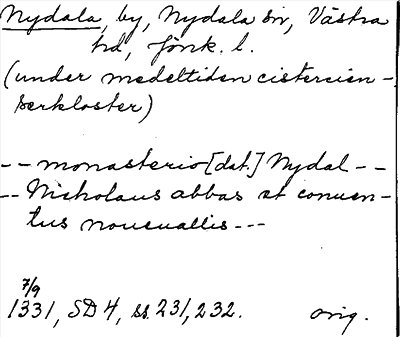 Nydala, by, Nydala sn, Västra
hd, Jönk. l.
(under medeltiden cistercien-
serkloster)
-- monasterio [dat.] Nydal --
-- Nicholaus abbas et conuen-
tus noueuallis ---
7/9
1331, SD 4, ss. 231, 232. orig.